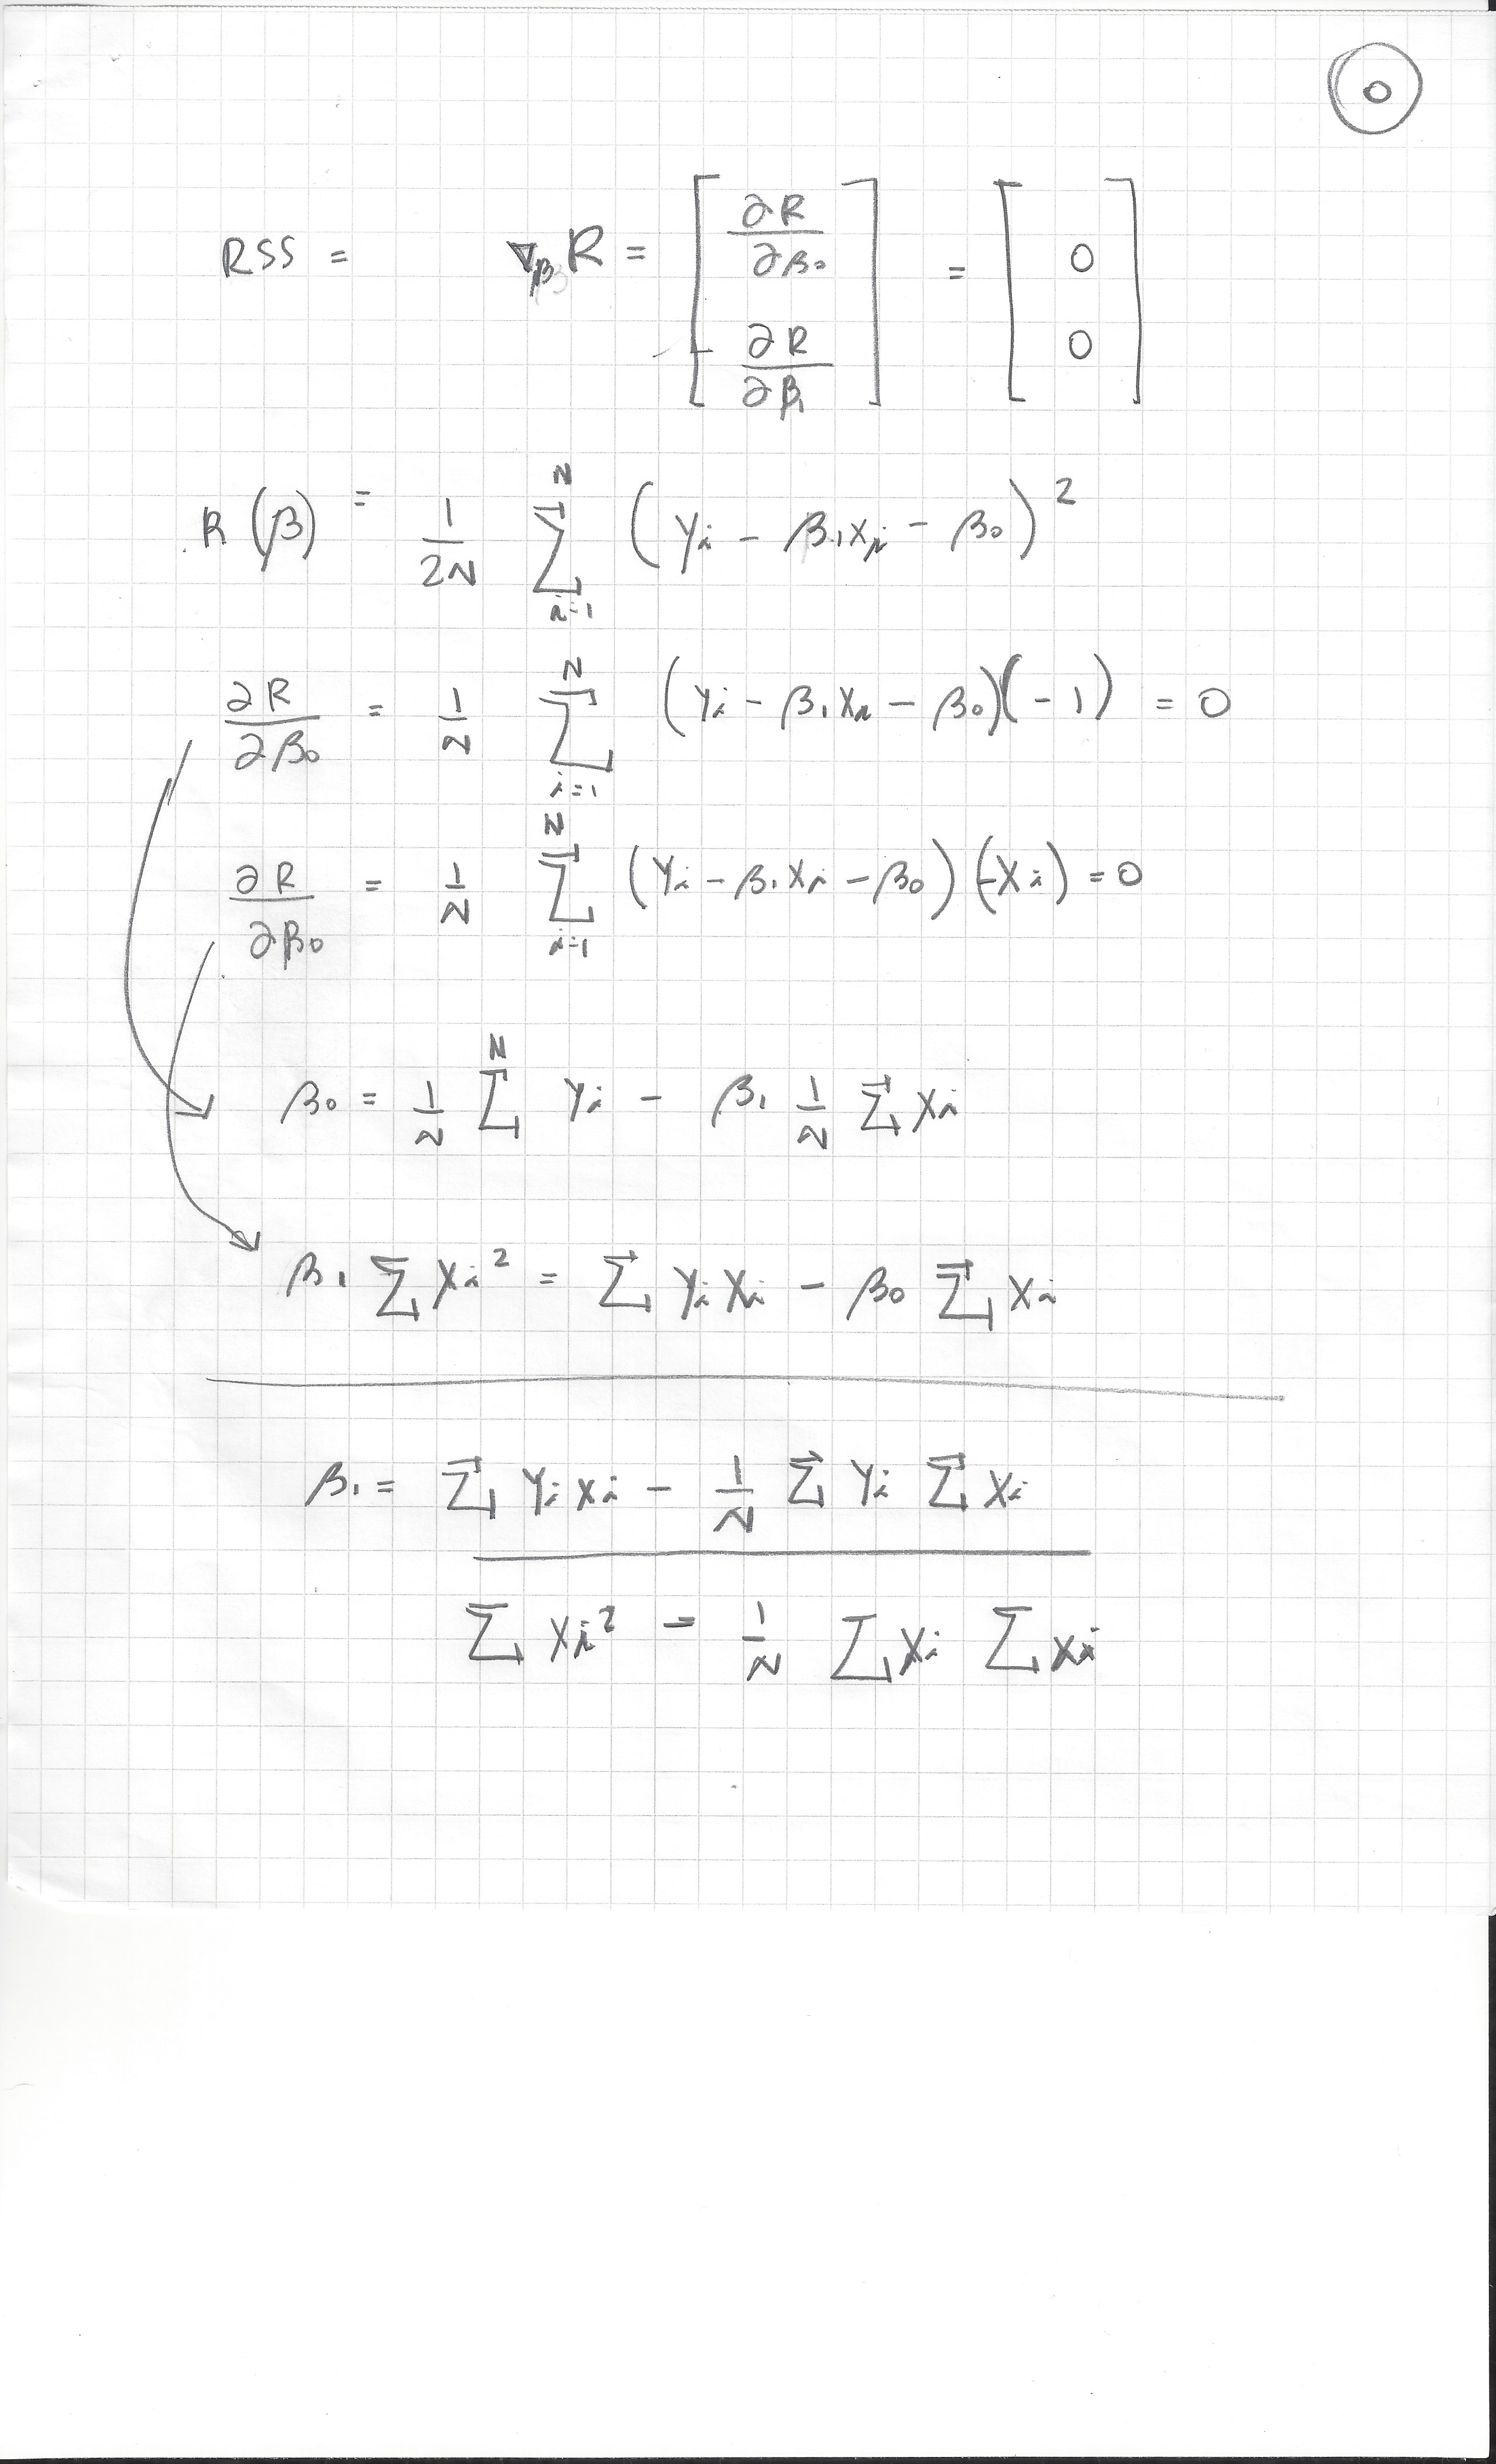 0
RSS = ∇_β R = [ ∂R/∂β₀ ∂R/∂β₁ ] = [ 0 0 ]
R(β) = 1/2N ∑_{i=1}^{N} (yᵢ - β₁xᵢ - β₀)²
∂R/∂β₀ = 1/N ∑_{i=1}^{N} (yᵢ - β₁xᵢ - β₀)(-1) = 0
∂R/∂β₀ = 1/N ∑_{i=1}^{N} (yᵢ - β₁xᵢ - β₀)(-xᵢ) = 0
β₀ = 1/N ∑^{N} yᵢ - β₁ 1/N ∑ xᵢ
β₁ ∑ xᵢ² = ∑ yᵢ xᵢ - β₀ ∑ xᵢ
β₁ = ∑ yᵢ xᵢ - 1/N ∑ yᵢ ∑ xᵢ
∑ xᵢ² - 1/N ∑ xᵢ ∑ xᵢ